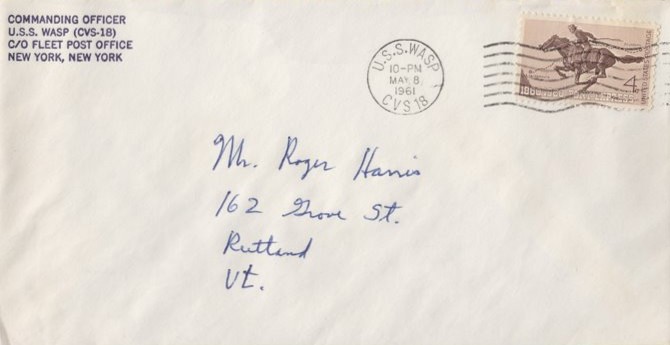 COMMANDING OFFICER
U.S.S. WASP (CVS-18)
C/O FLEET POST OFFICE
NEW YORK, NEW YORK
U.S.S. WASP
10-PM
MAY 8
1961
CVS 18
4
Mr. Roger Harris
162 Grove St.
Rutland
Vt.